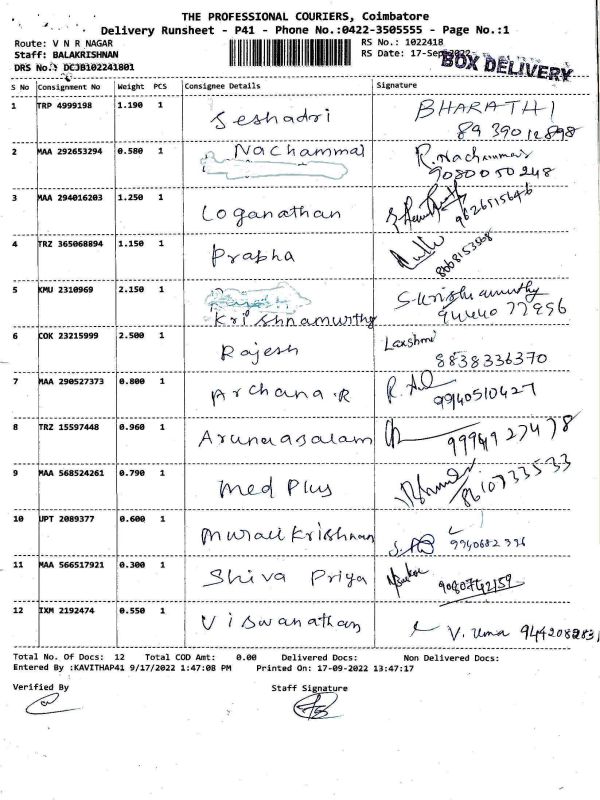 THE PROFESSIONAL COURIERS, Coimbatore
Delivery Runsheet - P41 - Phone No.:0422-3505555 - Page No.:1
Route: V N R NAGAR
RS No.: 1022418
Staff: BALAKRISHNAN
RS Date: 17-Sep-2022
BOX DELIVERY
DRS No.: DCJB102241801
S No Consignment No Weight PCS Consignee Details Signature
1 TRP 4999198 1.190 1 Seshadri BHARATHI
89390 12898
2 MAA 292653294 0.580 1 Nachammal R.Nachammai
9080050248
3 MAA 294016203 1.250 1 Loganathan
9626515646
4 TRZ 365068894 1.150 1 Prabha
5 KMU 2310969 2.150 1 Krishnamurthy
6 COK 23215999 2.500 1 Rajesh Laxshmi
8838336370
7 MAA 290527373 0.800 1 Archana.R
9940510427
8 TRZ 15597448 0.960 1 Arunasalam
9 MAA 568524261 0.790 1 Med Plus
8610733533
10 UPT 2089377 0.600 1 Murali Krishnan
9940682 396
11 MAA 566517921 0.300 1 Shiva Priya
9080742159
12 IXM 2192474 0.550 1 Viswanathan V. Uma
Total No. Of Docs: 12 Total COD Amt: 0.00 Delivered Docs: Non Delivered Docs:
Entered By :KAVITHAP41 9/17/2022 1:47:08 PM Printed On: 17-09-2022 13:47:17
Verified By Staff Signature